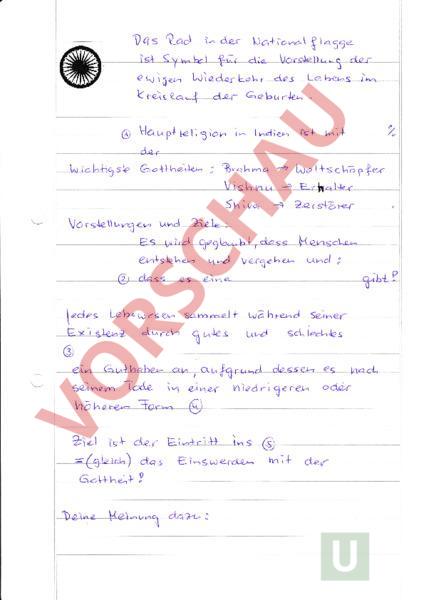 Das Rad in der Nationalflagge
ist Symbol für die Vorstellung der
ewigen Wiederkehr des Lebens im
Kreislauf der Geburten.
① Hauptreligion in Indien ist mit %
der
Wichtigste Gottheiten: Brahma → Weltschöpfer
Vishnu → Erhalter
Shiva → Zerstörer.
Vorstellungen und Ziele:
Es wird geglaubt, dass Menschen
entstehen und vergehen und:
② dass es eine gibt!
Jedes Lebewesen sammelt während seiner
Existenz durch gutes und schlechtes
③
ein Guthaben an, aufgrund dessen es nach
seinem Tode in einer niedrigeren oder
höheren Form ④
Ziel ist der Eintritt ins ⑤
=(gleich) das Einswerden mit der
Gottheit!
Deine Meinung dazu:
VORSCHAU
U